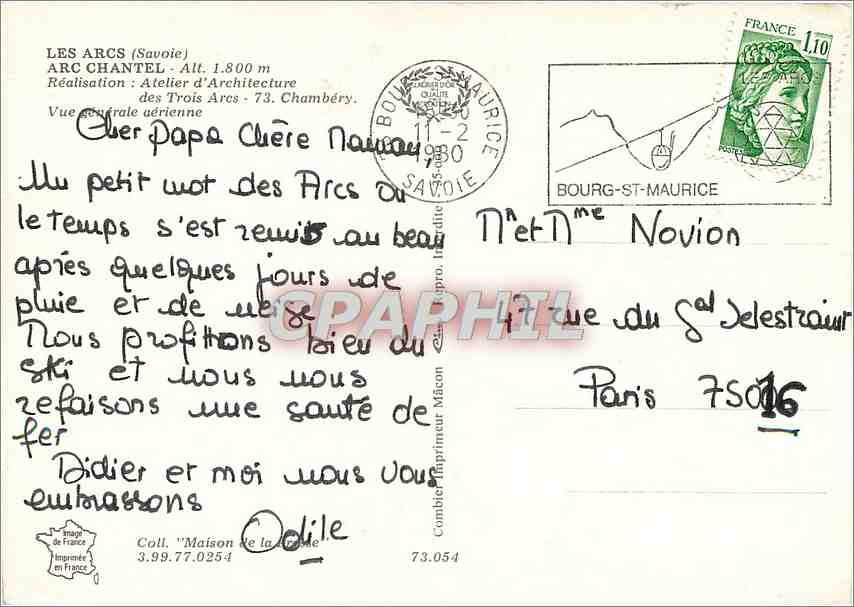 LES ARCS (Savoie)
ARC CHANTEL - Alt. 1.800 m
Réalisation : Atelier d'Architecture
des Trois Arcs - 73. Chambéry.
Vue générale aérienne
Cher Papa Chère Maman,
Un petit mot des Arcs où
le temps s'est remis au beau
après quelques jours de
pluie et de neige
Nous profitons bien du
ski et nous nous
refaisons une santé de
fer
Didier et moi nous vous
embrassons
Odile
Image
de France
Imprimée
en France
Coll. "Maison de la Presse"
3.99.77.0254
73.054
Combier Imprimeur Mâcon
Repro. Interdite
CPAPHIL
BOURG ST MAURICE
11-2
1980
SAVOIE
LES ARCS
BOURG-ST-MAURICE
FRANCE
1,10
POSTES
Mr et Mme Novion
47 rue du Gal Delestraint
Paris 75016